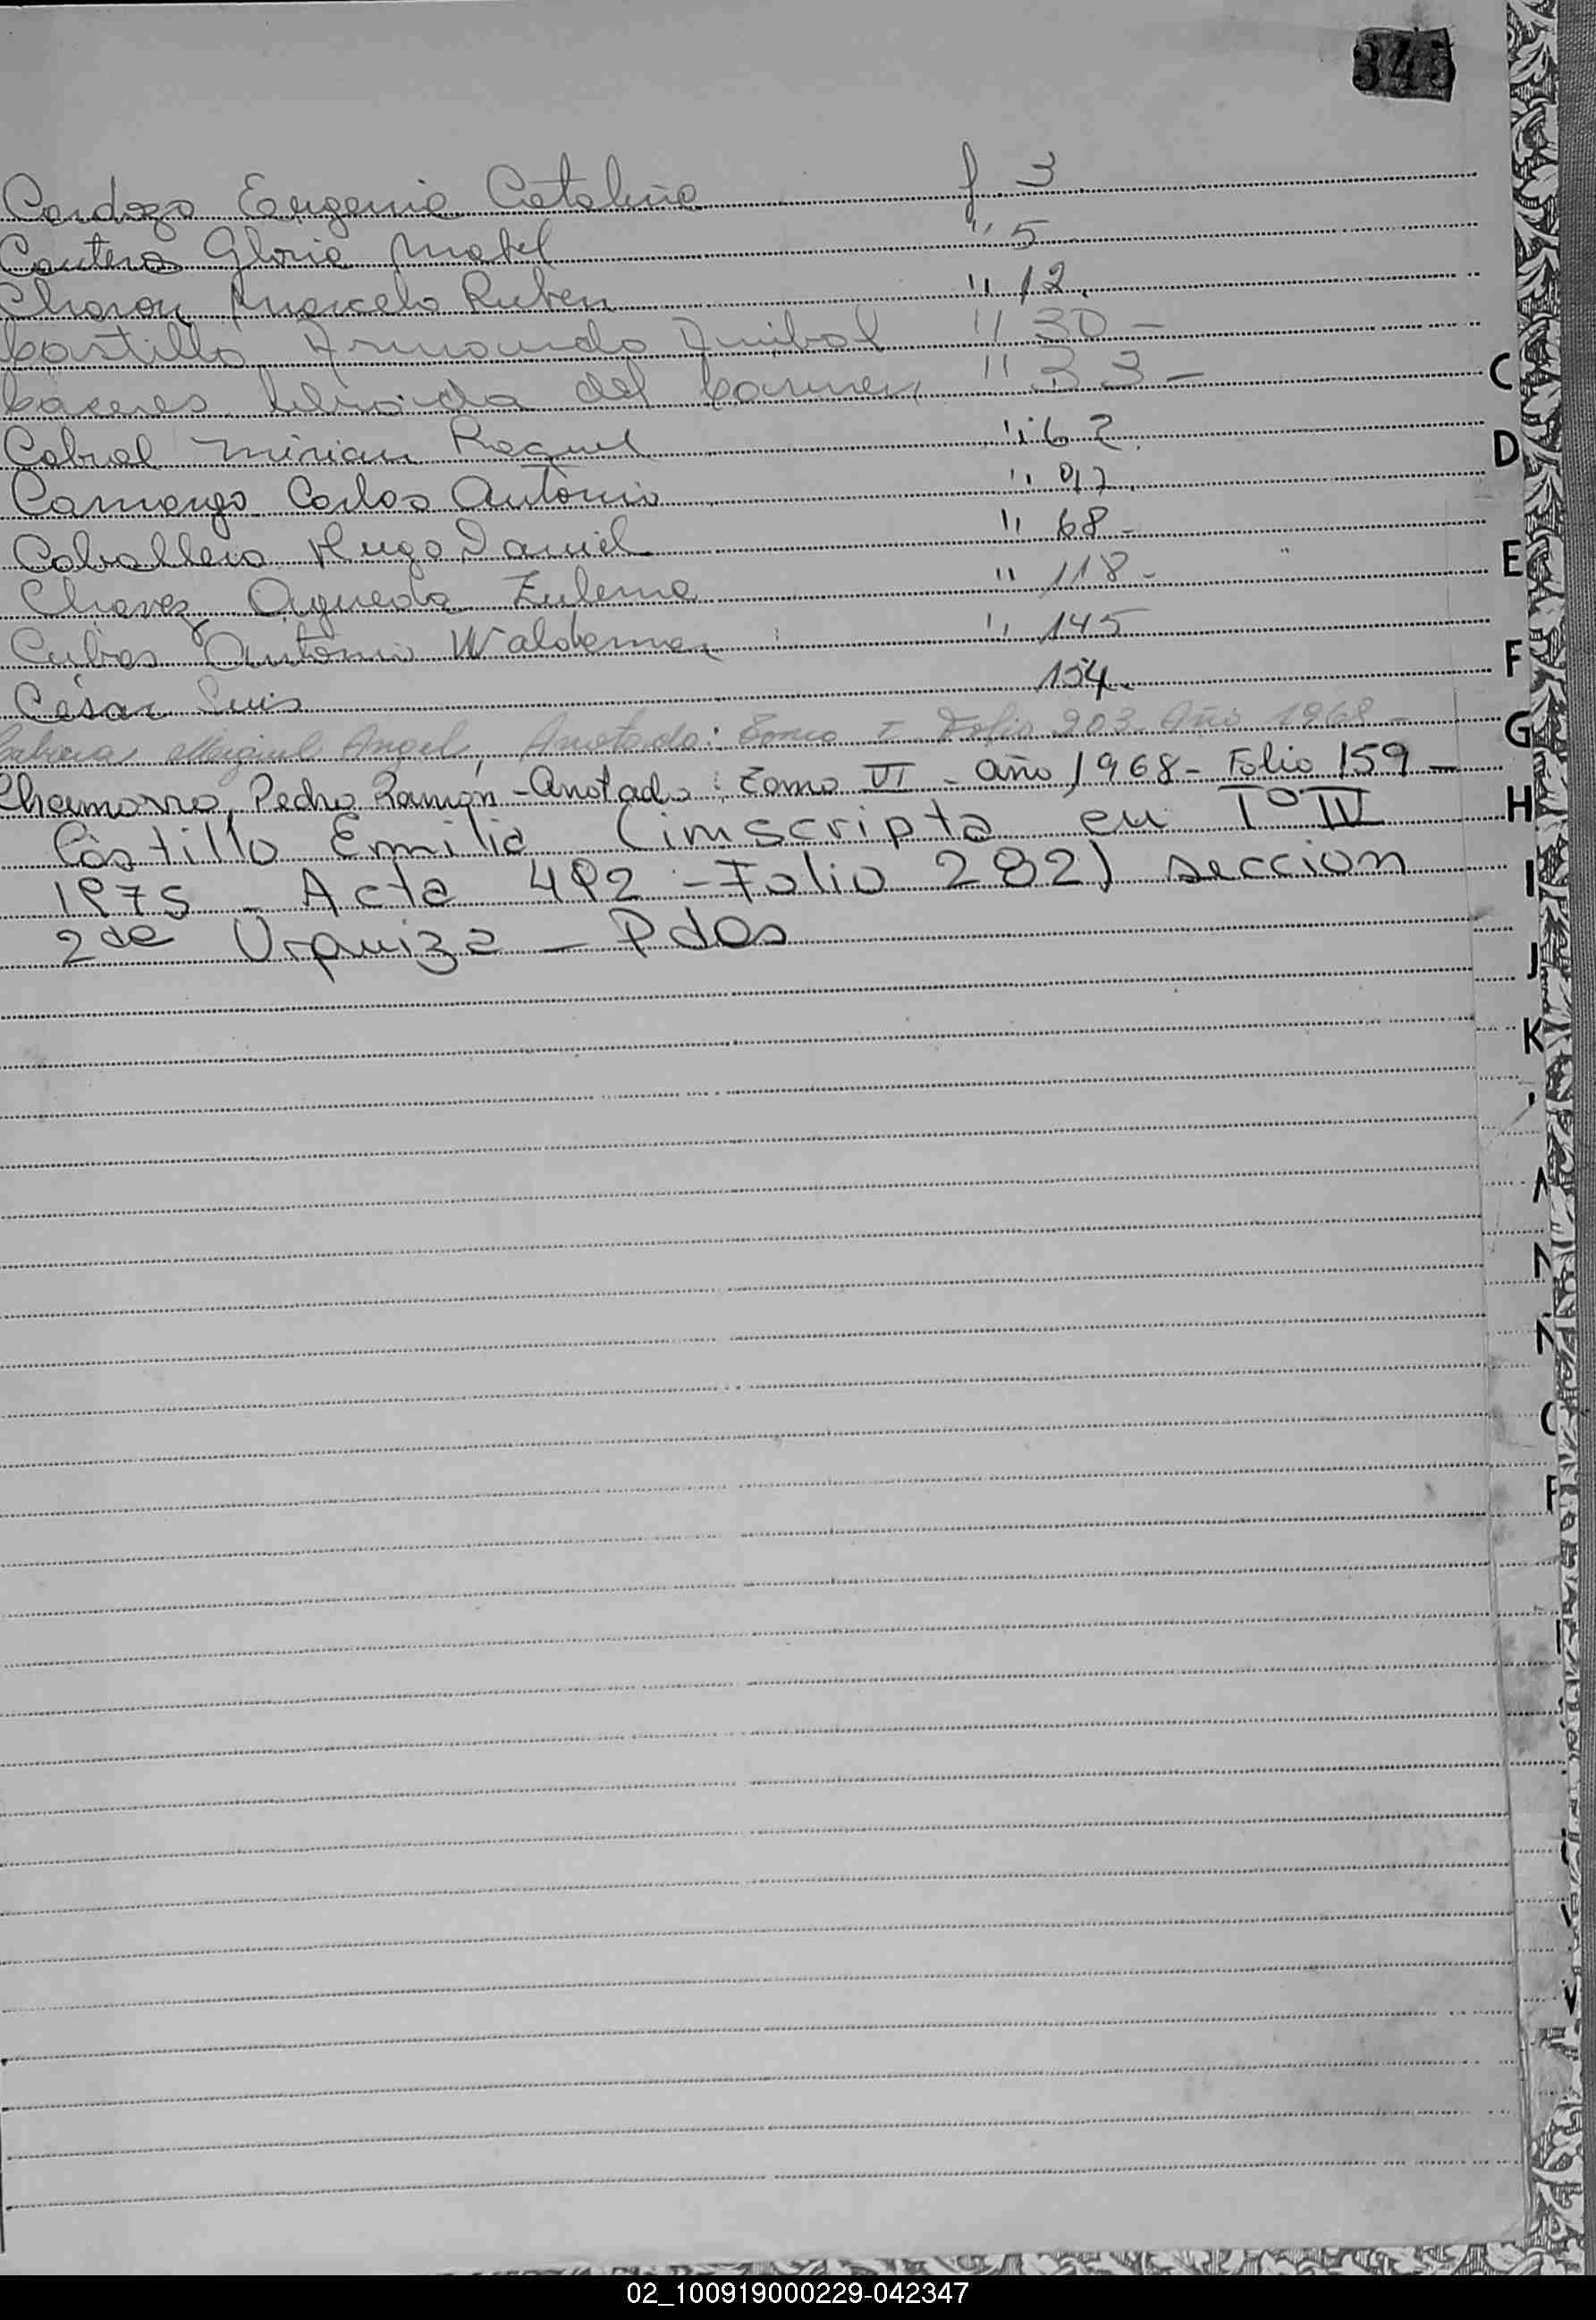 345
Cardozo Eugenia Catalina f. 3
Cantero Gloria Mabel " 5
Marcelo Ruben " 12.
Castillo Armando Anibal " 30 -
Caceres del Carmen " 33 -
C
Cabral Mirian Raquel " 62.
D
Camargo Carlos Antonio "
Caballero Hugo Daniel " 68 -
E
Chavez Agueda Zulema " 118 -
Cubas Antonio Waldemar " 145
F
César Luis 154.
G
Cabrera Miguel Angel, Anotado: Tomo I Folio 203. Año 1968 -
Chamorro, Pedro Ramón - Anotado: Tomo VI - Año 1968 - Folio 159 -
H
Castillo Emilia (inscripta en T° IV
I
1975 - Acta 492 - Folio 282) seccion
2da Urquiza - Pdas
J
K
N
02_100919000229-042347